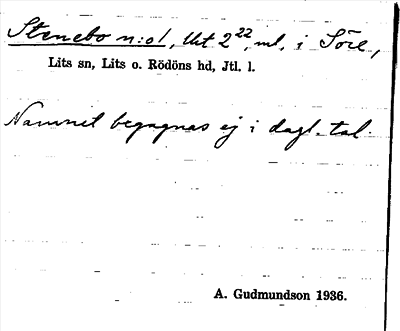 Stenebo n:o1, Ut 2²², ml. i Söre,
Lits sn, Lits o. Rödöns hd, Jtl. l.
Namnet begagnas ej i dagl. tal.
A. Gudmundson 1936.